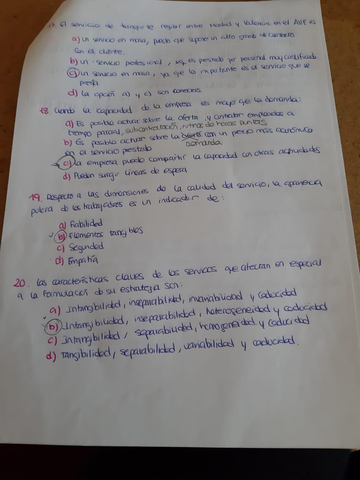 El servicio de transporte regular entre Madrid y Valencia en el AVE es
a) un servicio en masa, puesto que supone un alto grado de contacto
con el cliente.
b) un servicio profesional, es prestado por personal muy cualificado
c) un servicio en masa, ya que lo importante es el servicio que se
presta
d) La opción a) y c) son correctas.
18. Cuando la capacidad de la empresa es mayor que la demanda:
a) Es posible actuar sobre la oferta y contratar empleados a
tiempo parcial, subcontratación, en horas puntas
b) Es posible actuar sobre la demanda con un precio más económico
en el servicio prestado
c) La empresa puede compartir la capacidad con otras actividades
d) Pueden surgir líneas de espera
19. Respecto a las dimensiones de la calidad del servicio, la apariencia
pulcra de los trabajadores es un indicador de:
a) Fiabilidad
b) Elementos tangibles
c) Seguridad
d) Empatía
20. Las características claves de los servicios que afectan en especial
a la formulación de su estrategia son:
a) Intangibilidad, inseparabilidad, invariabilidad y caducidad
b) Intangibilidad, inseparabilidad, heterogeneidad y caducidad
c) Intangibilidad, separabilidad, homogeneidad y caducidad
d) Tangibilidad, separabilidad, variabilidad y caducidad.